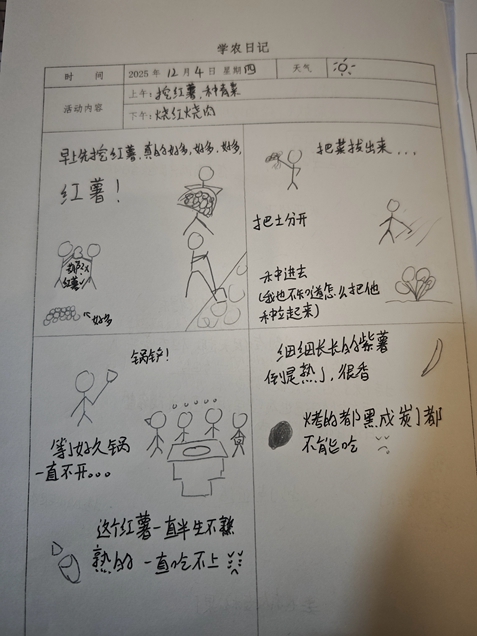 学农日记
时 间 2025 年 12 月 4 日 星期 四 天气
活动内容
上午: 挖红薯、种青菜
下午: 烧红烧肉
早上先挖红薯,真的好多,好多,好多,
红薯!
红薯
←好多
把菜拔出来...
把土分开
种进去
(我也不知道怎么把他
种立起来)
锅铲!
等了好久锅
一直不开。。。
这个红薯一直半生不熟
熟的一直吃不上
细细长长的紫薯
倒是熟了,很香
烤的都黑成炭了都
不能吃